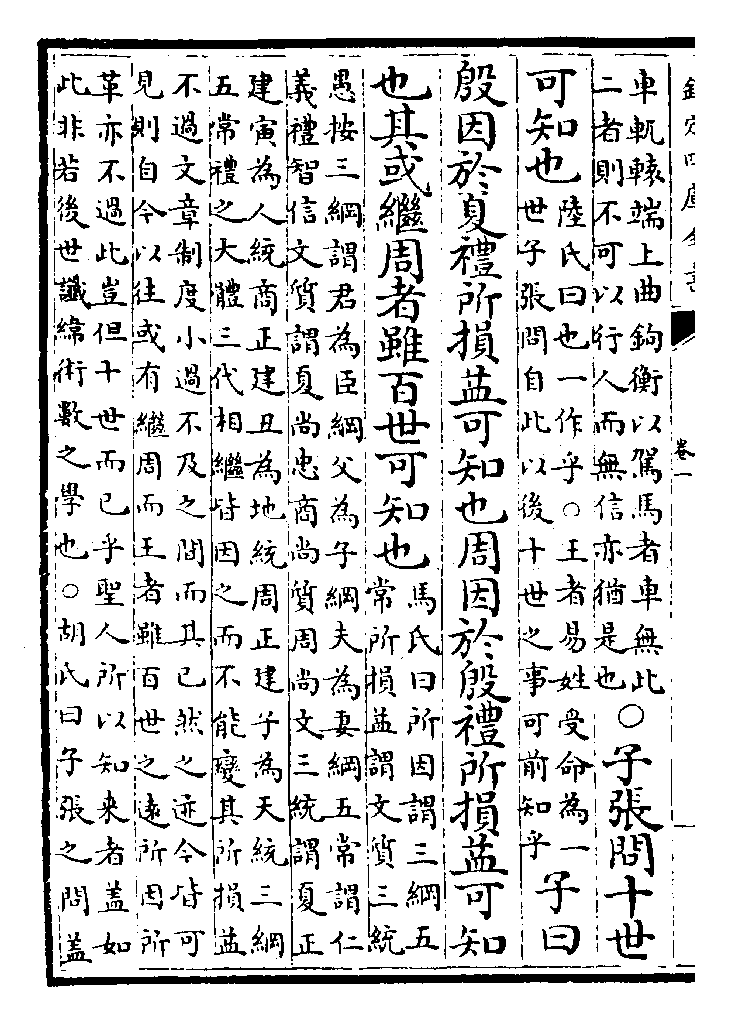 欽定四庫全書 卷一
車軏轅端上曲鉤衡以駕馬者車無此
二者則不可以行人而無信亦猶是也
○子張問十世
可知也
陸氏曰也一作乎○王者易姓受命為一
世子張問自此以後十世之事可前知乎
子曰
殷因於夏禮所損益可知也周因於殷禮所損益可知
也其或繼周者雖百世可知也
馬氏曰所因謂三綱五
常所損益謂文質三統
愚按三綱謂君為臣綱父為子綱夫為妻綱五常謂仁
義禮智信文質謂夏尚忠商尚質周尚文三統謂夏正
建寅為人統商正建丑為地統周正建子為天統三綱
五常禮之大體三代相繼皆因之而不能變其所損益
不過文章制度小過不及之間而其已然之迹今皆可
見則自今以往或有繼周而王者雖百世之遠所因所
革亦不過此豈但十世而已乎聖人所以知来者盖如
此非若後世讖緯術數之學也○胡氏曰子張之問盖